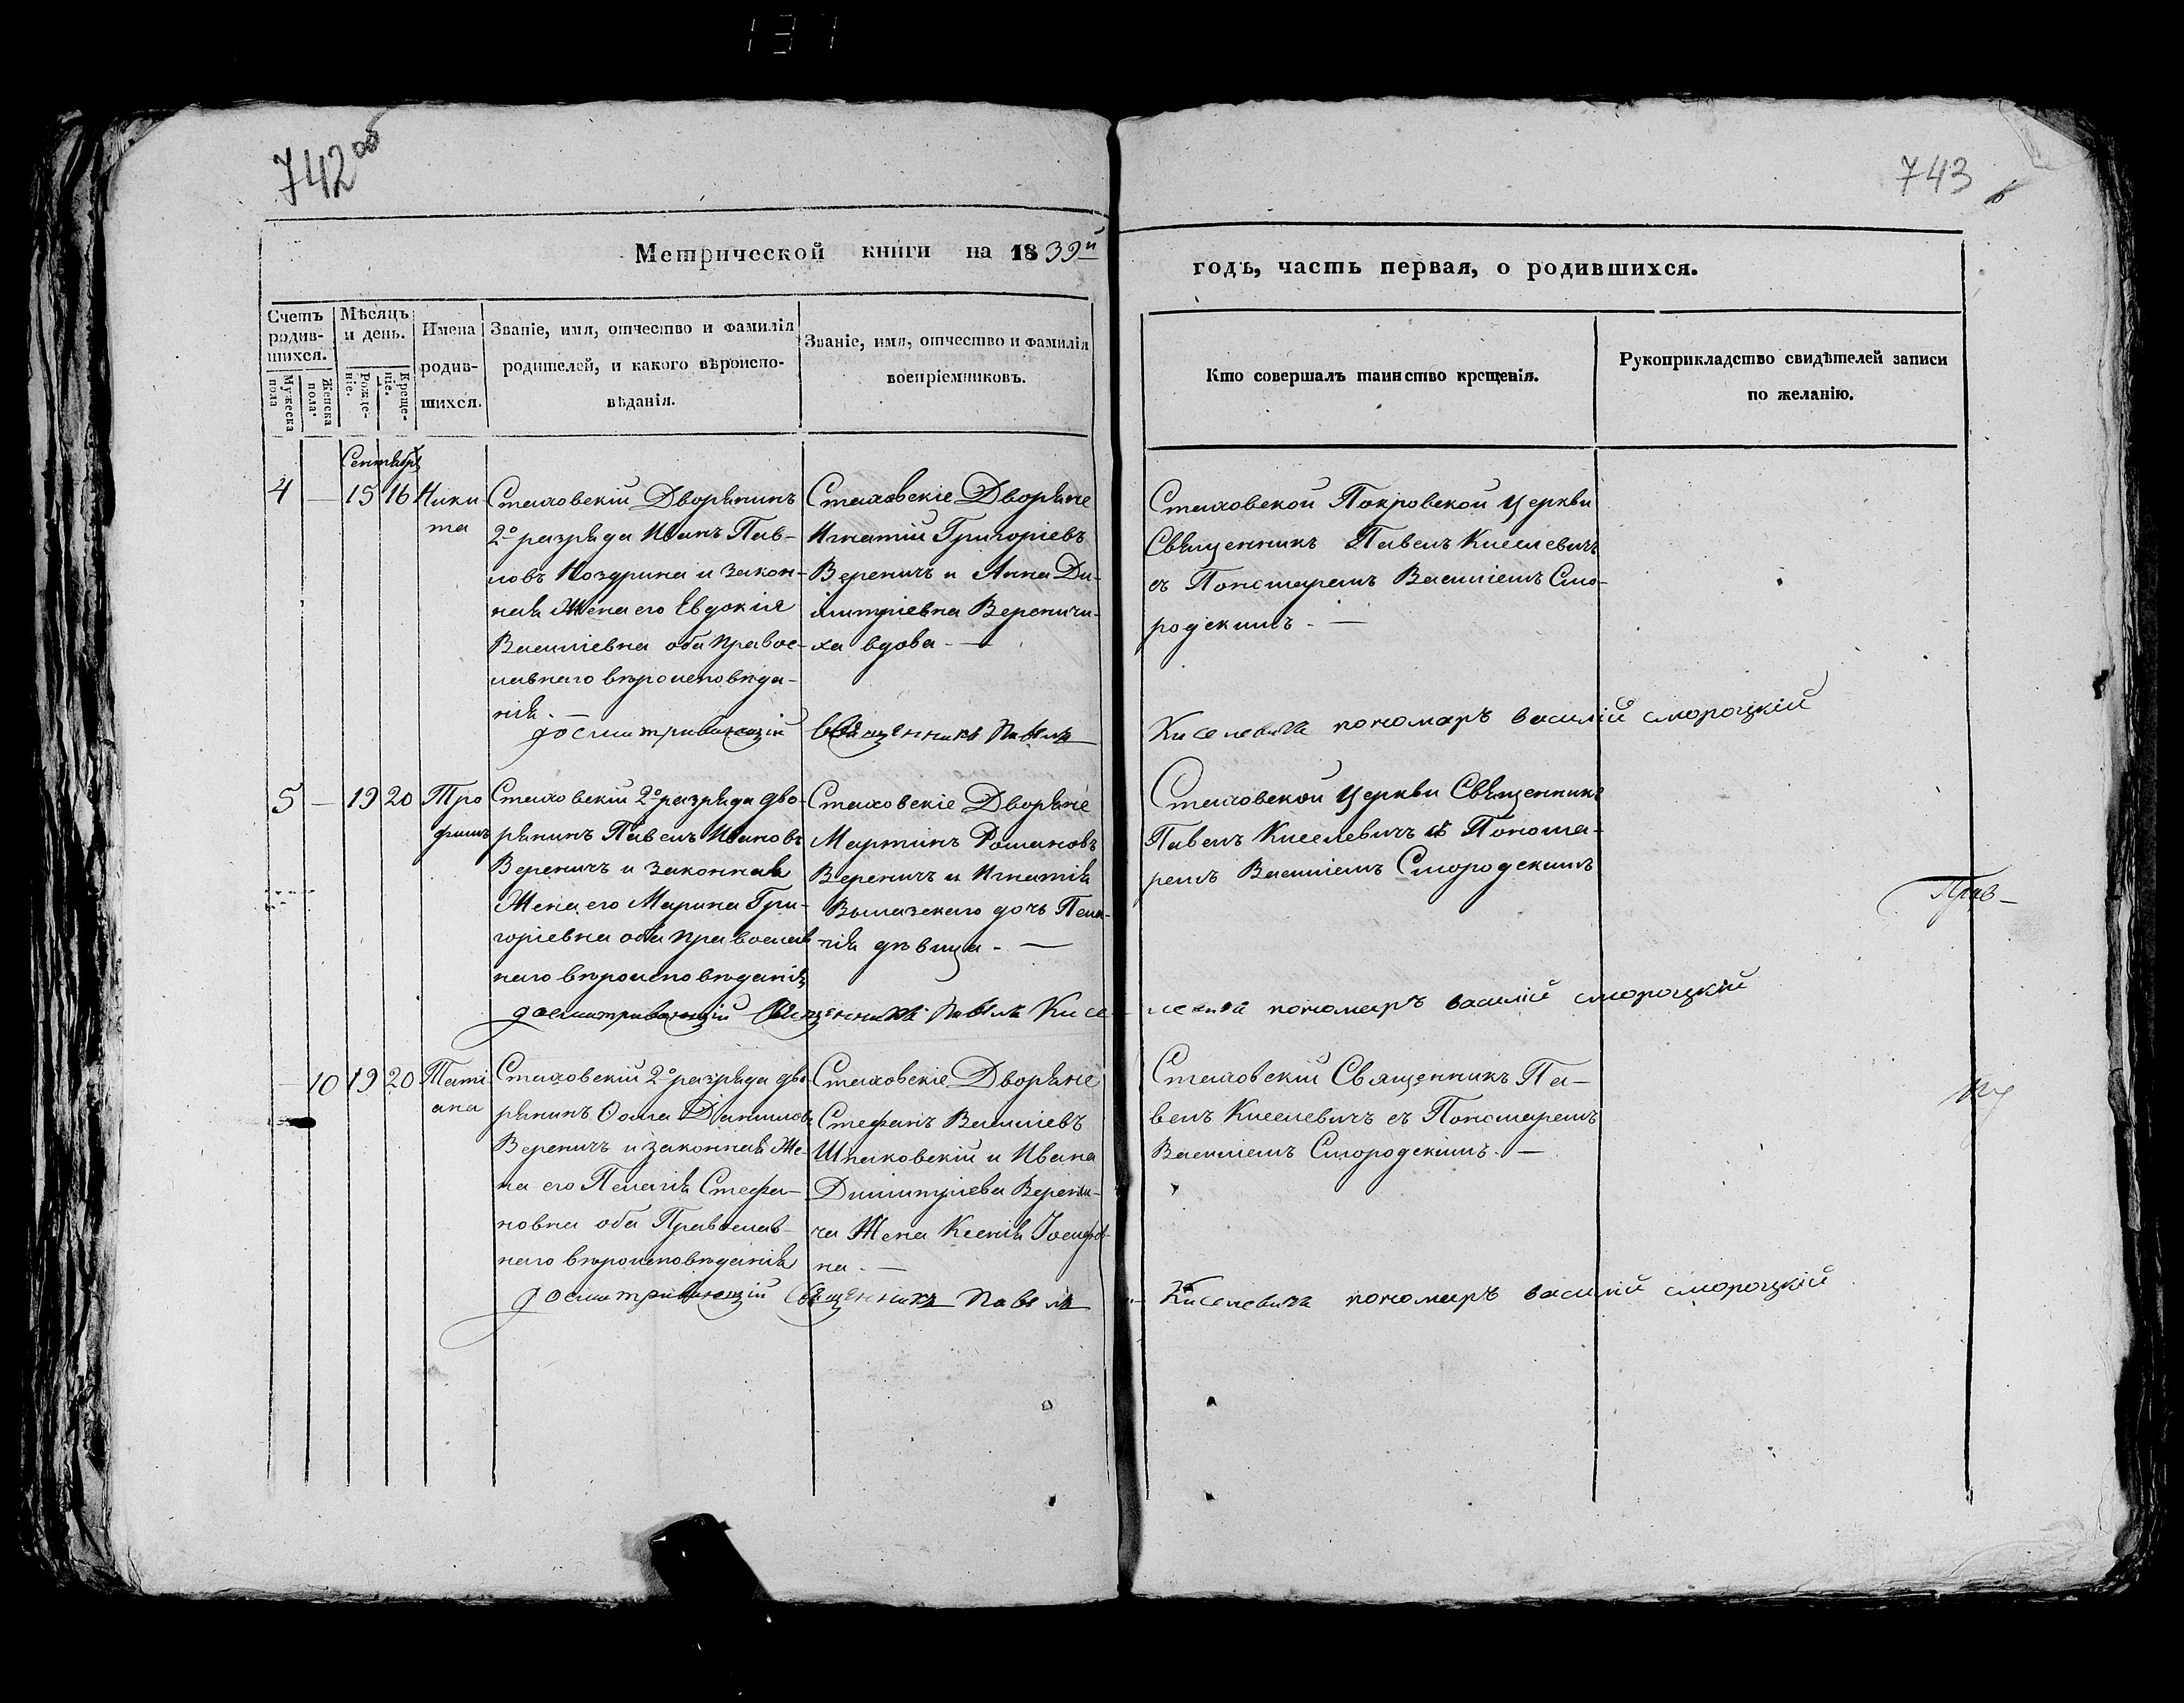 742 об
743
Метрической книги на 1839й
годъ, часть первая, о родившихся.
Счетъ родив-шихся.
Мужеска пола
Женска пола.
Мѣсяцъ и день.
Рожде-ніе.
Креще-ніе.
Имена
родив-
шихся.
Званіе, имя, отчество и фамилія
родителей, и какого вѣроиспо-
вѣданія.
Званіе, имя, отчество и фамилія
воспріемниковъ.
Кто совершалъ таинство крещенія.
Рукоприкладство свидѣтелей записи
по желанію.
Сентября
4 — 15 16
Ники
та
Стаховскій Дворянинъ
2о разряда Иванъ Пав-
ловъ Ноздрина и закон-
ная Жена его Евдокія
Василіевна оба правос-
лавнаго вѣроисповѣда-
нія. —
Стаховскіе Дворяне
Игнатій Григоріевъ
Вереничъ и Анна Ди-
митріевна Веренчи-
ха вдова. —
Стаховской Покровской Церкви
Священникъ Павелъ Киселевичъ
съ Пономаремъ Василіемъ Смо-
родскимъ. —
досматривающій Священникъ Павелъ Киселевичъ пономаръ василій смороцкій
5 — 19 20
Тро
фимъ
Стаховскій 2о разряда дво-
рянинъ Павелъ Ивановъ
Вереничъ и законная
Жена его Марина Гри-
горіевна оба православ
наго вѣроисповѣданія
Стаховскіе Дворяне
Мартинъ Романовъ
Вереничъ и Игнатія
Вылазскаго дочь Пела-
гія дѣвица. —
Стаховской Церкви Священникъ
Павелъ Киселевичъ съ Понома-
ремъ Василіемъ Смородскимъ
Прав-
досматривающій Священникъ Павелъ Кисе-
левичъ пономаръ василій смороцкій
10 19 20
Таті
ана
Стаховскій 2о разряда дво-
рянинъ Ѳома Даниловъ
Вереничъ и законная Же-
на его Пелагія Стефа-
новна оба Православ-
наго вѣроисповѣданія
Стаховскіе Дворяне
Стефанъ Василіевъ
Шпаковскій и Ивана
Димитріева Верени-
ча Жена Ксенія Іосифов-
на. —
Стаховскій Священникъ Па-
велъ Киселевичъ съ Пономаремъ
Василіемъ Смородскимъ. —
досматривающій Священникъ Павелъ
Киселевичъ пономаръ василій смороцкій